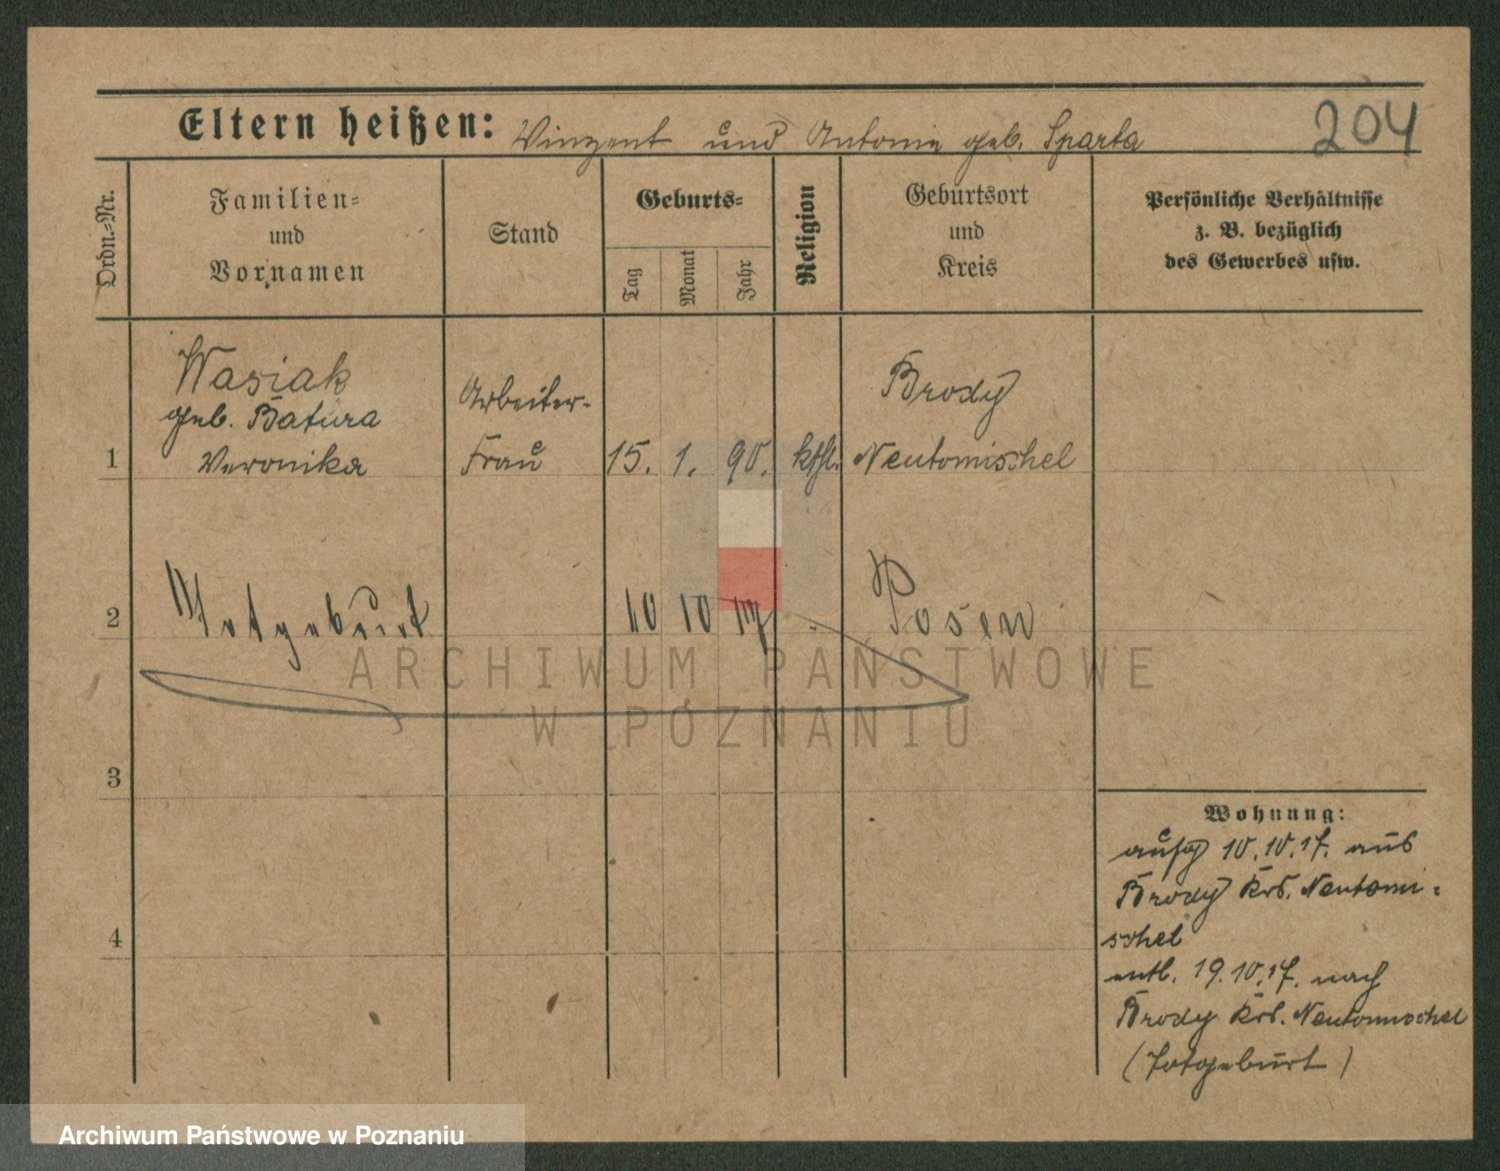 Eltern heißen: Winzent und Antonie geb. Sparta
204
Ordn.-Nr.
Familien-
und
Vornamen
Stand
Geburts-
Tag
Monat
Jahr
Religion
Geburtsort
und
Kreis
Persönliche Verhältnisse
z. B. bezüglich
des Gewerbes usw.
Wasiak
geb. Batura
Veronika
1
Arbeiter-
Frau
15. 1. 90. kthl.
Brody
Neutomischel
2 Totgeburt 10 10 17 Posen
3
4
Wohnung:
aufg 10.10.17. aus
Brody Krs. Neutomi-
schel
entl. 19.10.17. nach
Brody Krs. Neutomischel
(Totgeburt)
ARCHIWUM PAŃSTWOWE
W POZNANIU
Archiwum Państwowe w Poznaniu